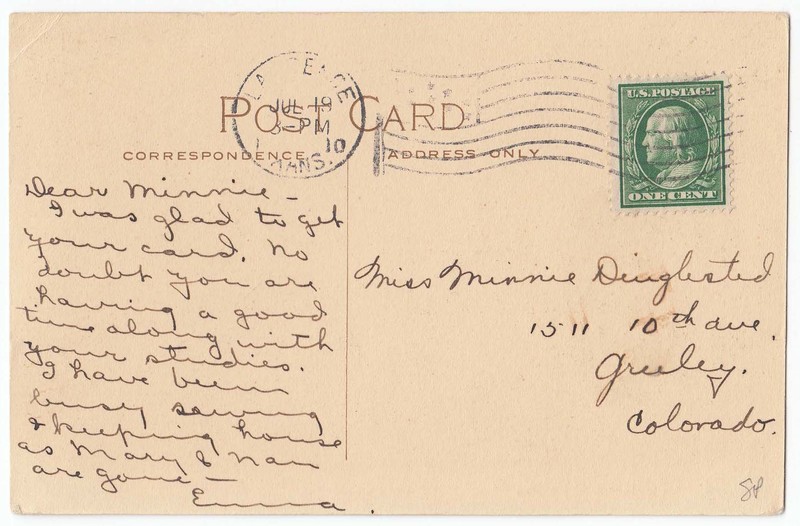 POST CARD
CORRESPONDENCE
ADDRESS ONLY
JUL 19
3-PM
10
KANS.
U.S. POSTAGE
ONE CENT
Dear Minnie -
I was glad to get
your card. No
doubt you are
having a good
time along with
your studies.
I have been
busy sewing
& keeping house
as Mary & Nan
are gone -
Emma.
Miss Minnie Dinglested
1511 10th ave.
Greeley.
Colorado.